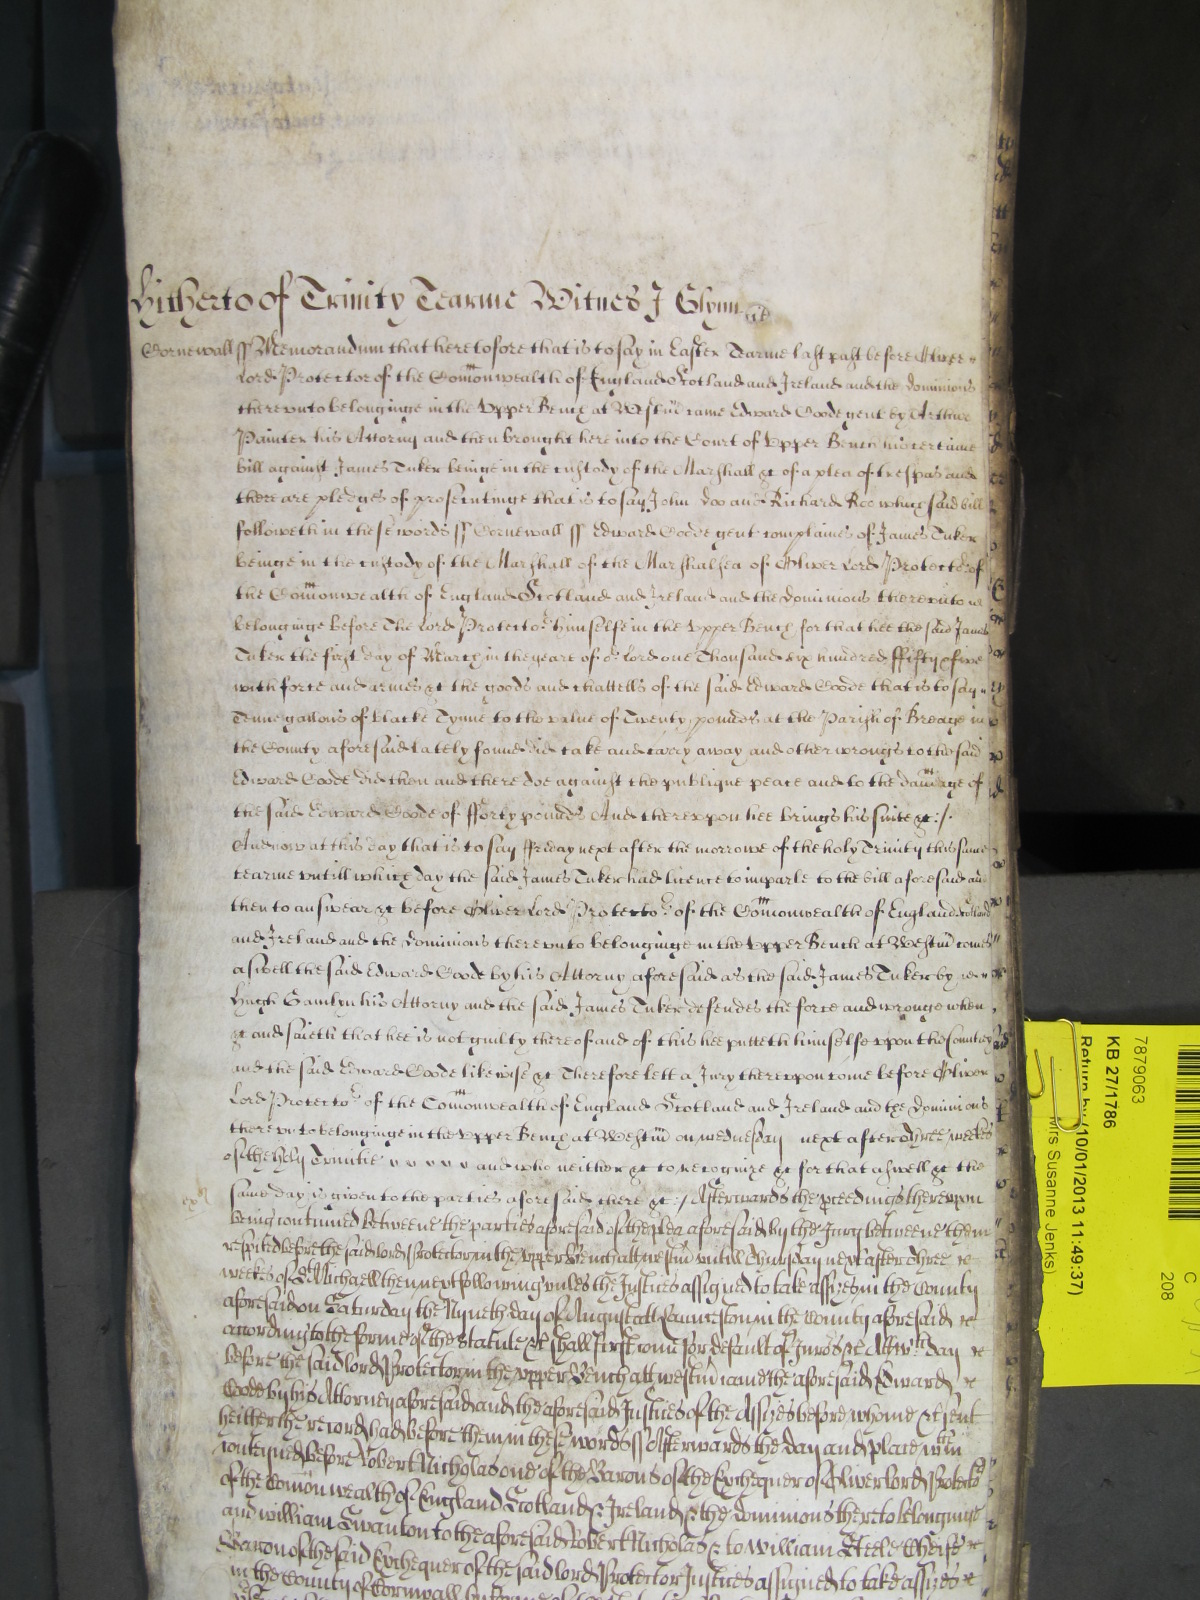 Hitherto of Trinity Tearme Witnes J Glynn
Cornewall ss Memorandum that heretofore that is to say in Easter Tearme last past before Oliver
Lord Protector of the Com̃onwealth of England Scotland and Ireland and the dominions
therevnto belonginge in the Vpper Bench at Westm̃ came Edward Coode gent by Arthur
Painter his Attorny and then brought here into the Court of Vpper Bench his certaine
bill against James Tuker beinge in the custody of the Marshall &c of a plea of trespas and
there are pledges of prosecutinge that is to say John Doo and Richard Roo which said bill
followeth in these words ss Cornewall ss Edward Coode gent complaines of James Tuker
beinge in the custody of the Marshall of the Marshalsea of Oliver Lord Protector of
the Com̃onwealth of England Scotland and Ireland and the Dominions therevnto
belonginge before The Lord Protector himselfe in the Vpper Bench for that hee the said James
Tuker the first day of March in the yeare of or Lord one Thousand six hundred ffifty & five
with force and armes &c the goods and chattells of the said Edward Coode that is to say
Tenne gallons of blacke Tynne to the value of Twenty pounds at the Parish of Breage in
the County aforesaid lately found did take and carry away and other wrongs to the said
Edward Coode did then and there doe against the publique peace and to the damage of
the said Edward Coode of fforty pounds And therevpon hee brings his suite &c :/.
And now at this day that is to say ffriday next after the morrowe of the holy Trinity this same
tearme vntill which day the said James Tuker had licence to imparle to the bill aforesaid and
then to answear &c before Oliver Lord Protector of the Com̃onwealth of England Scotland
and Ireland and the dominions therevnto belonginge in the Vpper Bench at Westm̃ comes
aswell the said Edward Coode by his Attorny aforesaid as the said James Tuker by
Hugh Gamlyn his Attorny and the said James Tuker defendes the force and wronge when
&c and saieth that hee is not guilty thereof and of this hee putteth himselfe vpon the Country
and the said Edward Coode likewise &c Therefore lett a Jury therevpon come before Oliver
Lord Protector of the Com̃onwealth of England Scotland and Ireland and the Dominions
therevnto belonginge in the Vpper Bench at Westm̃ on wednesday next after three weekes
of the holy Trinitie and who neither &c to recognize &c for that aswell &c the
same day is given to the parties aforesaid there &c :/ Afterwards the pceedings therevpon
being continued betweene the parties aforesaid of the plea aforesaid by the Jury betweene them
respited before the said lord Protector in the vpper Bench att westm̃ vntill Thursday next after three
weekes of St Michaell then next following vnles the Justices assigned to take assizes in the County
aforesaid on Saturday the Nyneth day of August att Launceston in the County aforesaid
according to the forme of the statute &c shall first come for default of Jurors &c Att wch day
before the said lord Protector in the vpper Bench att westm̃ came the aforesaid Edward
Coode by his Attorney aforesaid and the aforesaid Justices of the Assizes before whome &c sent
heither the record had before them in these words ss Afterwards the day and place wthin
conteyned before Robert Nicholas one of the Barons of the Exchequer of Oliver lord Protector
of the Com̃onwealth of England Scotland & Ireland & the dominions thereto belonginge
and william Swanton to the aforesaid Robert Nicholas & to William Steele Cheife
Baron of the said Exchequer of the said lord Protector Justices assigned to take assizes
in the County of Cornwall by forme of
7879063
KB 27/1786
Return by (10/01/2013 11:49:37)
Mrs Susanne Jenks)
208